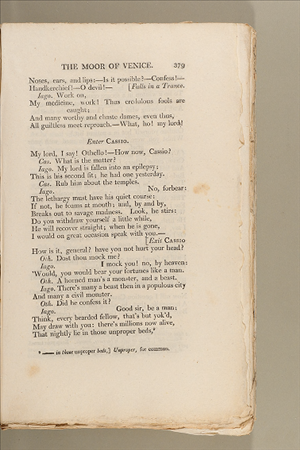 THE MOOR OF VENICE. 279
Noses, ears, and lips:—Is it possible?—Confess!—
Handkerchief!—O devil!— [Falls in a Trance.
Iago. Work on,
My medicine, work! Thus credulous fools are
caught;
And many worthy and chaste dames, even thus,
All guiltless meet reproach.—What, ho! my lord!
Enter CASSIO.
My lord, I say! Othello!—How now, Cassio?
Cas. What is the matter?
Iago. My lord is fallen into an epilepsy;
This is his second fit; he had one yesterday.
Cas. Rub him about the temples.
Iago. No, forbear:
The lethargy must have his quiet course:
If not, he foams at mouth; and, by and by,
Breaks out to savage madness. Look, he stirs:
Do you withdraw yourself a little while,
He will recover straight; when he is gone,
I would on great occasion speak with you.—
[Exit CASSIO
How is it, general? have you not hurt your head?
Oth. Dost thou mock me?
Iago. I mock you! no, by heaven:
'Would, you would bear your fortunes like a man.
Oth. A horned man's a monster, and a beast.
Iago. There's many a beast then in a populous city
And many a civil monster.
Oth. Did he confess it?
Iago. Good sir, be a man;
Think, every bearded fellow, that's but yok'd,
May draw with you: there's millions now alive,
That nightly lie in those unproper beds,*
* —— in those unproper beds,] Unproper, for common.